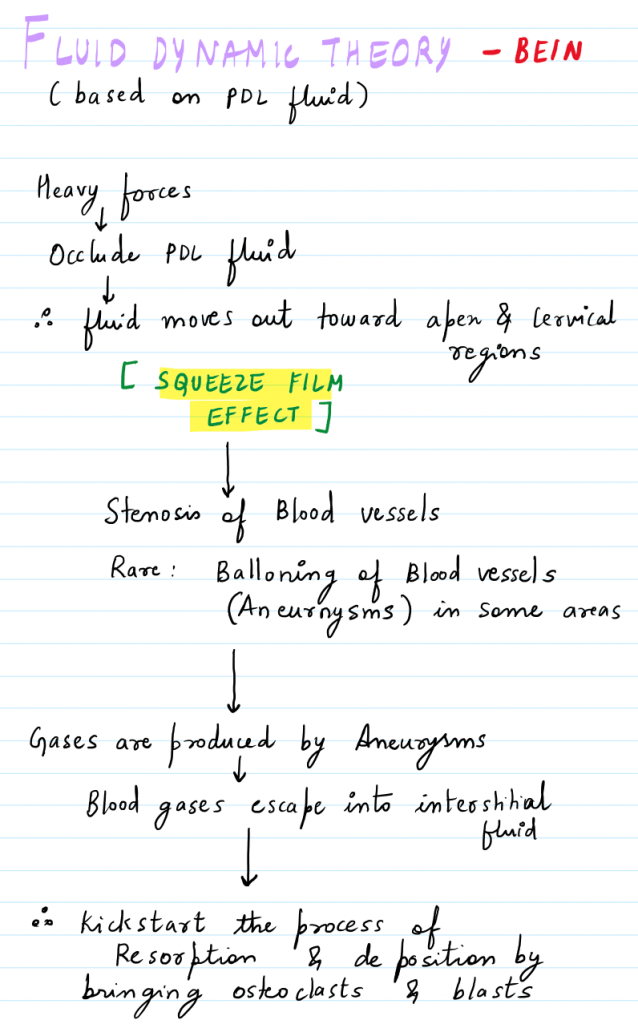 FLUID DYNAMIC THEORY - BEIN
(based on PDL fluid)
Heavy forces
↓
Occlude PDL fluid
↓
∴ fluid moves out toward apex & cervical
regions
[ SQUEEZE FILM
EFFECT ]
↓
Stenosis of Blood vessels
Rare : Balloning of Blood vessels
(Aneurnysms) in some areas
↓
Gases are produced by Aneurysms
↓
Blood gases escape into interstitial
fluid
↓
∴ kickstart the process of
Resorption & deposition by
bringing osteoclasts & blasts